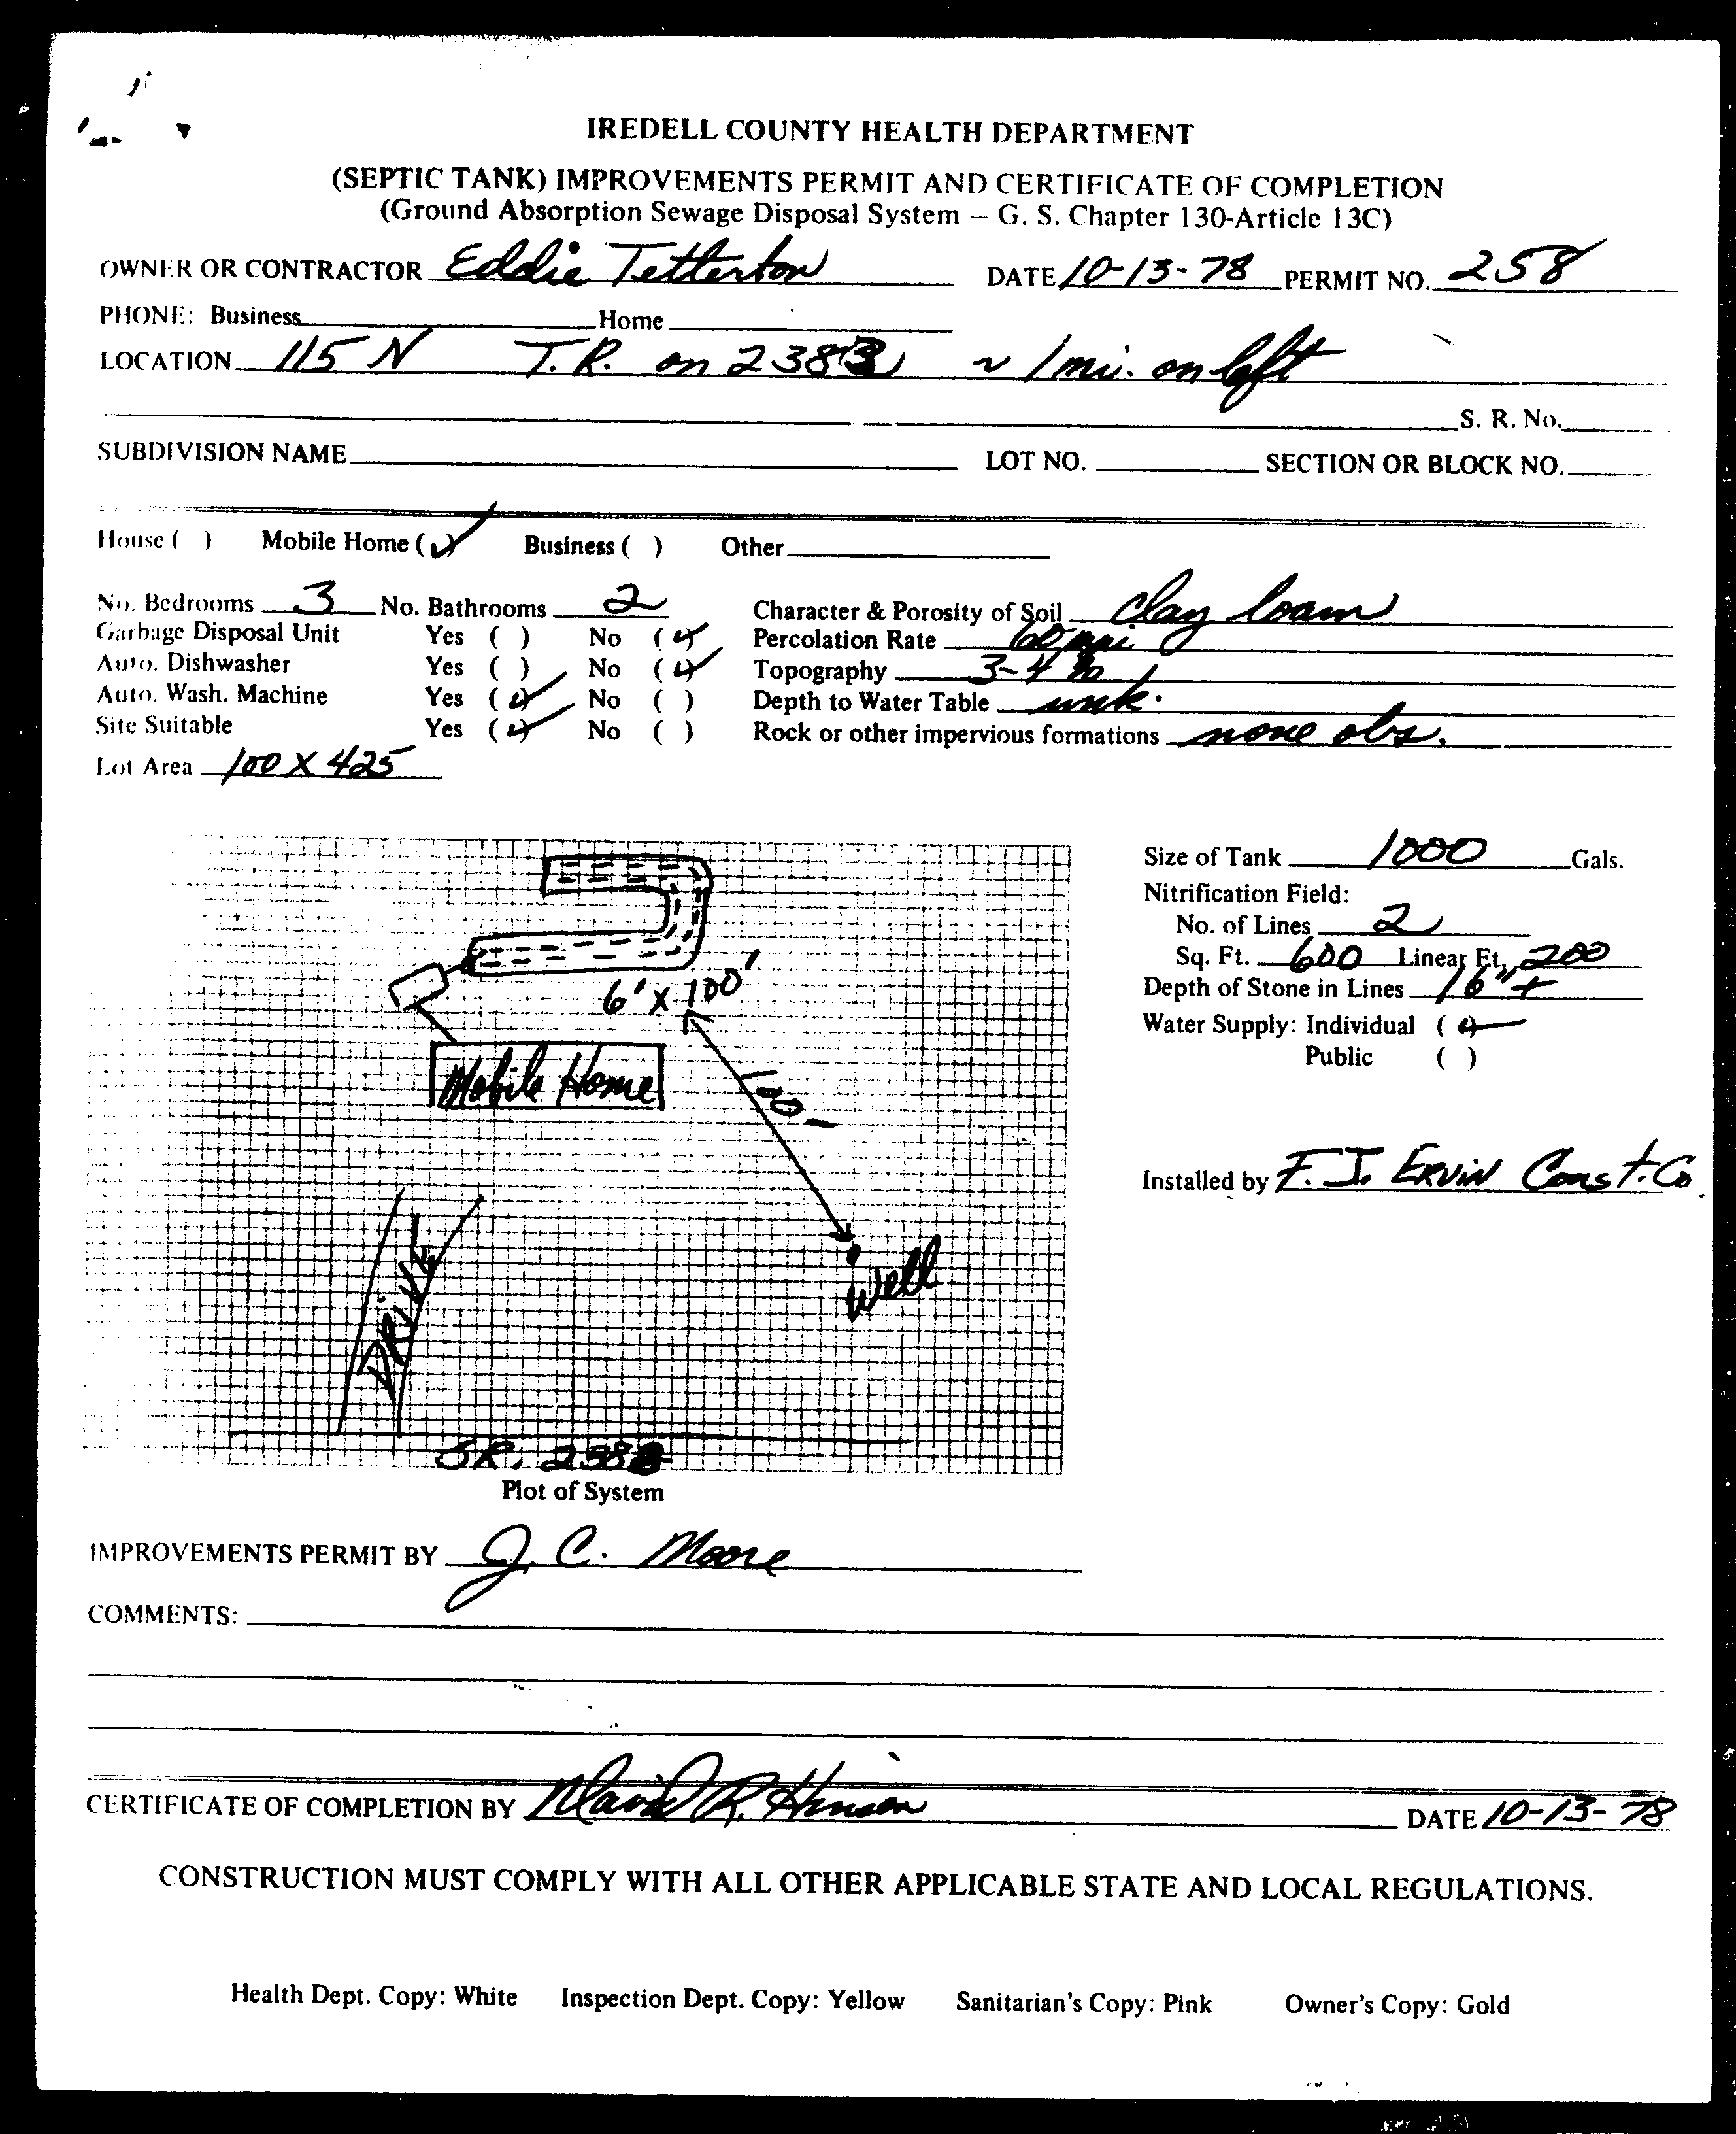 IREDELL COUNTY HEALTH DEPARTMENT
(SEPTIC TANK) IMPROVEMENTS PERMIT AND CERTIFICATE OF COMPLETION
(Ground Absorption Sewage Disposal System — G. S. Chapter 130-Article 13C)
OWNER OR CONTRACTOR Eddie Tetterton DATE 10-13-78 PERMIT NO. 258
PHONE: Business Home
LOCATION 115 N T.R. on 2383 ~ 1 mi. on left
S. R. No.
SUBDIVISION NAME LOT NO. SECTION OR BLOCK NO.
House ( ) Mobile Home (✓) Business ( ) Other
No. Bedrooms 3 No. Bathrooms 2 Character & Porosity of Soil Clay loam
Garbage Disposal Unit Yes ( ) No (✓) Percolation Rate 60 mpi
Auto. Dishwasher Yes ( ) No (✓) Topography 3-4 %
Auto. Wash. Machine Yes (✓) No ( ) Depth to Water Table unk.
Site Suitable Yes (✓) No ( ) Rock or other impervious formations none obs.
Lot Area 100 X 425
Size of Tank 1000 Gals.
Nitrification Field:
No. of Lines 2
Sq. Ft. 600 Linear Ft. 200
Depth of Stone in Lines 16"+
Water Supply: Individual (✓)
Public ( )
Installed by F. J. ERVIN Const. Co
6' x 100'
Mobile Home
100'
Well
DRIVE
SR.
Plot of System
IMPROVEMENTS PERMIT BY J. C. Moore
COMMENTS:
CERTIFICATE OF COMPLETION BY David R. Hinson DATE 10-13-78
CONSTRUCTION MUST COMPLY WITH ALL OTHER APPLICABLE STATE AND LOCAL REGULATIONS.
Health Dept. Copy: White Inspection Dept. Copy: Yellow Sanitarian's Copy: Pink Owner's Copy: Gold